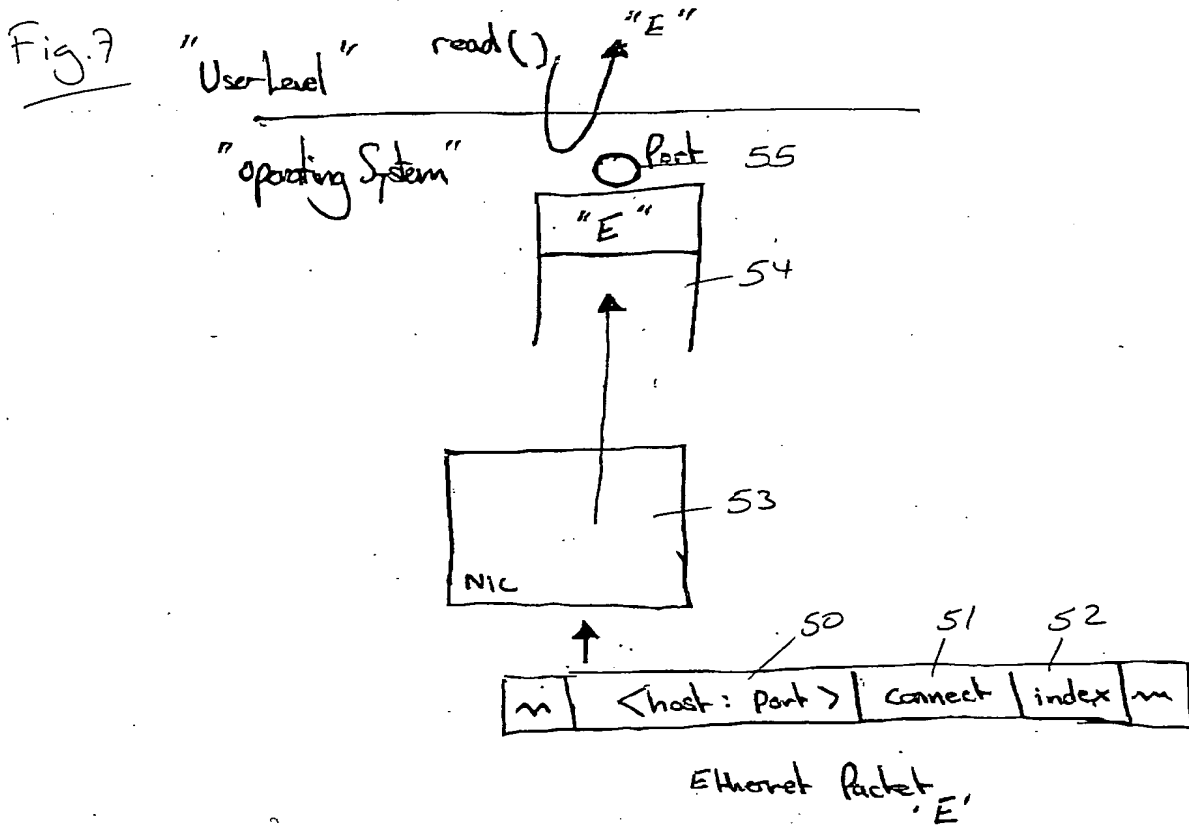 Fig.7
"User-Level"
read()
"E"
"Operating System"
Port 55
"E"
54
53
NIC
50
51
52
<host: Port>
connect
index
Ethernet Packet
'E'